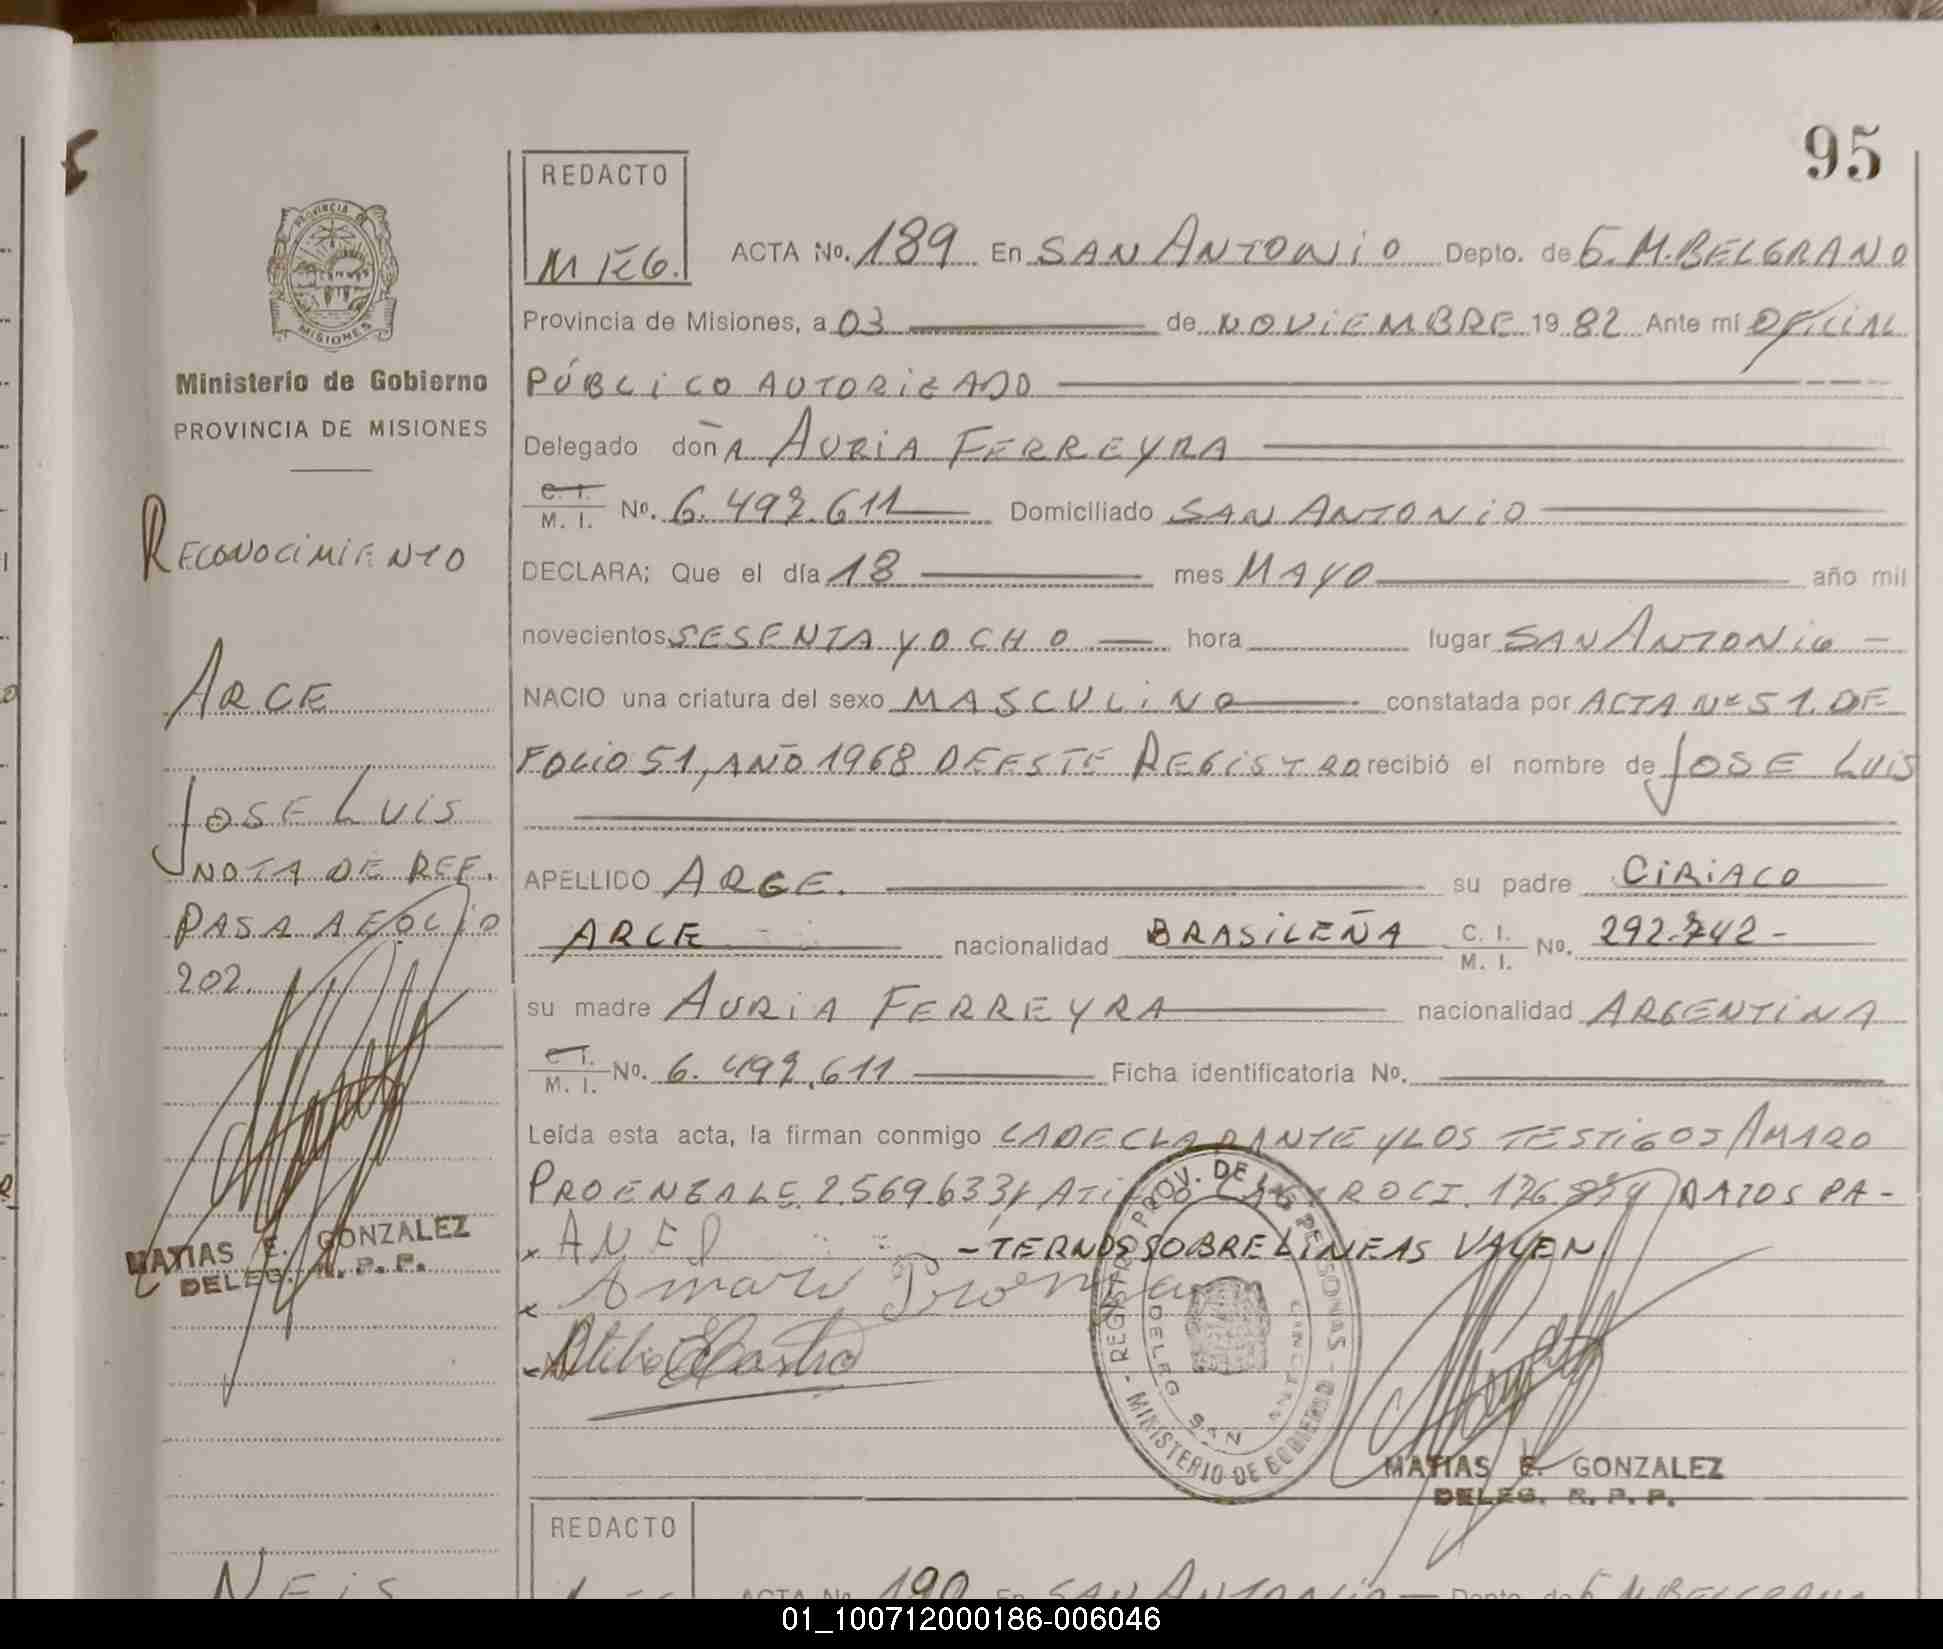 95
REDACTO
M E G.
ACTA No. 189 En SAN ANTONIO Depto. de G. M. BELGRANO
Provincia de Misiones, a 03 de NOVIEMBRE 1982 Ante mí OFICIAL
PÚBLICO AUTORIZADO
Delegado doñA AURIA FERREYRA
C. I.
M. I. No. 6.492.611 Domiciliado SAN ANTONIO
DECLARA; Que el día 18 mes MAYO año mil
novecientos SESENTA Y OCHO hora lugar SAN ANTONIO -
NACIO una criatura del sexo MASCULINO constatada por ACTA Nº 51. DE
FOLIO 51, AÑO 1968 DE ESTE REGISTRO recibió el nombre de JOSE LUIS
APELLIDO ARCE. su padre CIRIACO
ARCE nacionalidad BRASILEÑA C. I.
M. I. No. 292.742-
su madre AURIA FERREYRA nacionalidad ARGENTINA
C. I.
M. I. No. 6.492.611 Ficha identificatoria No.
Leída esta acta, la firman conmigo LA DECLARANTE Y LOS TESTIGOS AMARO
PROENZA L.E. 2.569.633 Y ATILIO CASTRO C.I. DATOS PA-
-TERNOS SOBRE LINEAS VALEN.
x A.N.F.
x Amaro Proenza
x Atilio Castro
REGISTRO PROV. DE LAS PERSONAS - MINISTERIO DE GOBIERNO -
DELEG. SAN ANTONIO
MATIAS E. GONZALEZ
DELEG. R. P. P.
PROVINCIA DE
MISIONES
Ministerio de Gobierno
PROVINCIA DE MISIONES
RECONOCIMIENTO
ARCE
JOSE LUIS
NOTA DE REF.
PASA A FOLIO
202.
MATIAS E. GONZALEZ
DELEG. R. P. P.
NEIS
REDACTO
ACTA No. 190 En SAN ANTONIO Depto. de G. M. BELGRANO
01_100712000186-006046